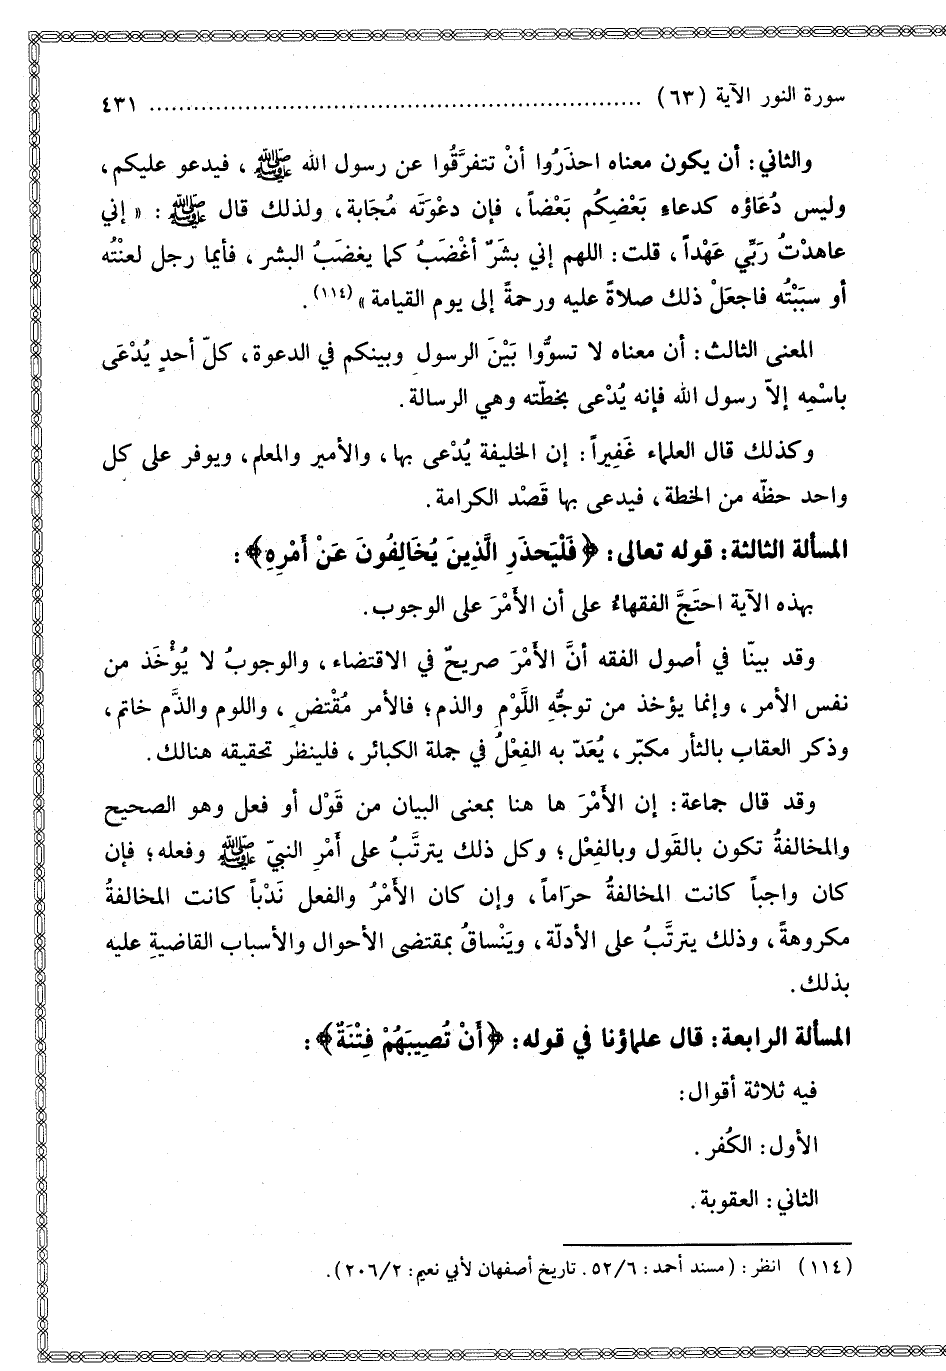 سورة النور الآية (٦٣) ........................................................ ٤٣١
والثاني: أن يكون معناه احذَرُوا أنْ تتفرَّقُوا عن رسول الله ﷺ، فيدعو عليكم،
وليس دُعَاؤه كدعاءِ بَعْضِكُم بَعْضاً، فإن دعوْتَه مُجَابة، ولذلك قال ﷺ: «إني
عاهدْتُ رَبِّي عَهْداً، قلت: اللهم إني بشَرٌ أغْضَبُ كما يغضَبُ البشر، فأيما رجل لعنْتُه
أو سبَبْتُه فاجعَلْ ذلك صلاةً عليه ورحمةً إلى يوم القيامة» (١١٤).
المعنى الثالث: أن معناه لا تسوُّوا بَيْنَ الرسولِ وبينكم في الدعوة، كلّ أحدٍ يُدْعَى
باسْمِه إلاّ رسول الله فإنه يُدْعى بخطّته وهي الرسالة.
وكذلك قال العلماء غَفِيراً: إن الخليفة يُدْعى بها، والأمير والمعلم، ويوفر على كل
واحد حظّه من الخطة، فيدعى بها قَصْد الكرامة.
المسألة الثالثة: قوله تعالى: ﴿فَلْيَحذَرِ الَّذِينَ يُخَالِفُونَ عَنْ أَمْرِهِ﴾:
بهذه الآية احتَجَّ الفقهاءُ على أن الأَمْرَ على الوجوب.
وقد بينّا في أصول الفقه أنَّ الأَمْرَ صريحٌ في الاقتضاء، والوجوبُ لا يُؤْخَذ من
نفس الأمر، وإنما يؤخذ من توجُّهِ اللَّوْمِ والذم؛ فالأمر مُقْتضٍ، واللوم والذَّم خاتم،
وذكر العقاب بالثأر مكبّر، يُعَدّ به الفِعْلُ في جملة الكبائر، فلينظر تحقيقه هنالك.
وقد قال جماعة: إن الأَمْرَ ها هنا بمعنى البيان من قَوْل أو فعل وهو الصحيح
والمخالفةُ تكون بالقَول وبالفِعْل؛ وكل ذلك يترتَّبُ على أَمْرِ النبيّ ﷺ وفعله؛ فإن
كان واجباً كانت المخالفةُ حرَاماً، وإن كان الأَمْرُ والفعل نَدْباً كانت المخالفةُ
مكروهةً، وذلك يترتَّبُ على الأدلّة، ويَنْساقُ بمقتضى الأحوال والأسباب القاضيةِ عليه
بذلك.
المسألة الرابعة: قال علماؤنا في قوله: ﴿أَنْ تُصِيبَهُمْ فِتْنَةٌ﴾:
فيه ثلاثة أقوال:
الأول: الكُفر.
الثاني: العقوبة.
(١١٤) انظر: (مسند أحمد: ٥٢/٦. تاريخ أصفهان لأبي نعيم: ٢٠٦/٢).